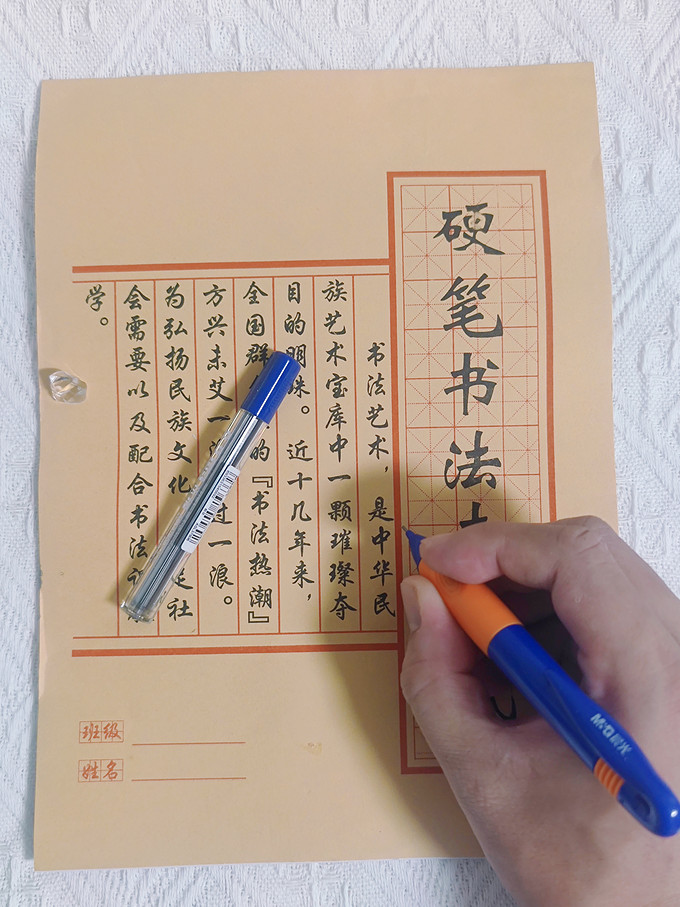 硬笔书法
书法艺术，是中华民
族艺术宝库中一颗璀璨夺
目的明珠。近十几年来，
全国群的『书法热潮』
方兴未艾一浪过一浪。
为弘扬民族文化足社
会需要以及配合书法
学。
班级
姓名
M&G晨光